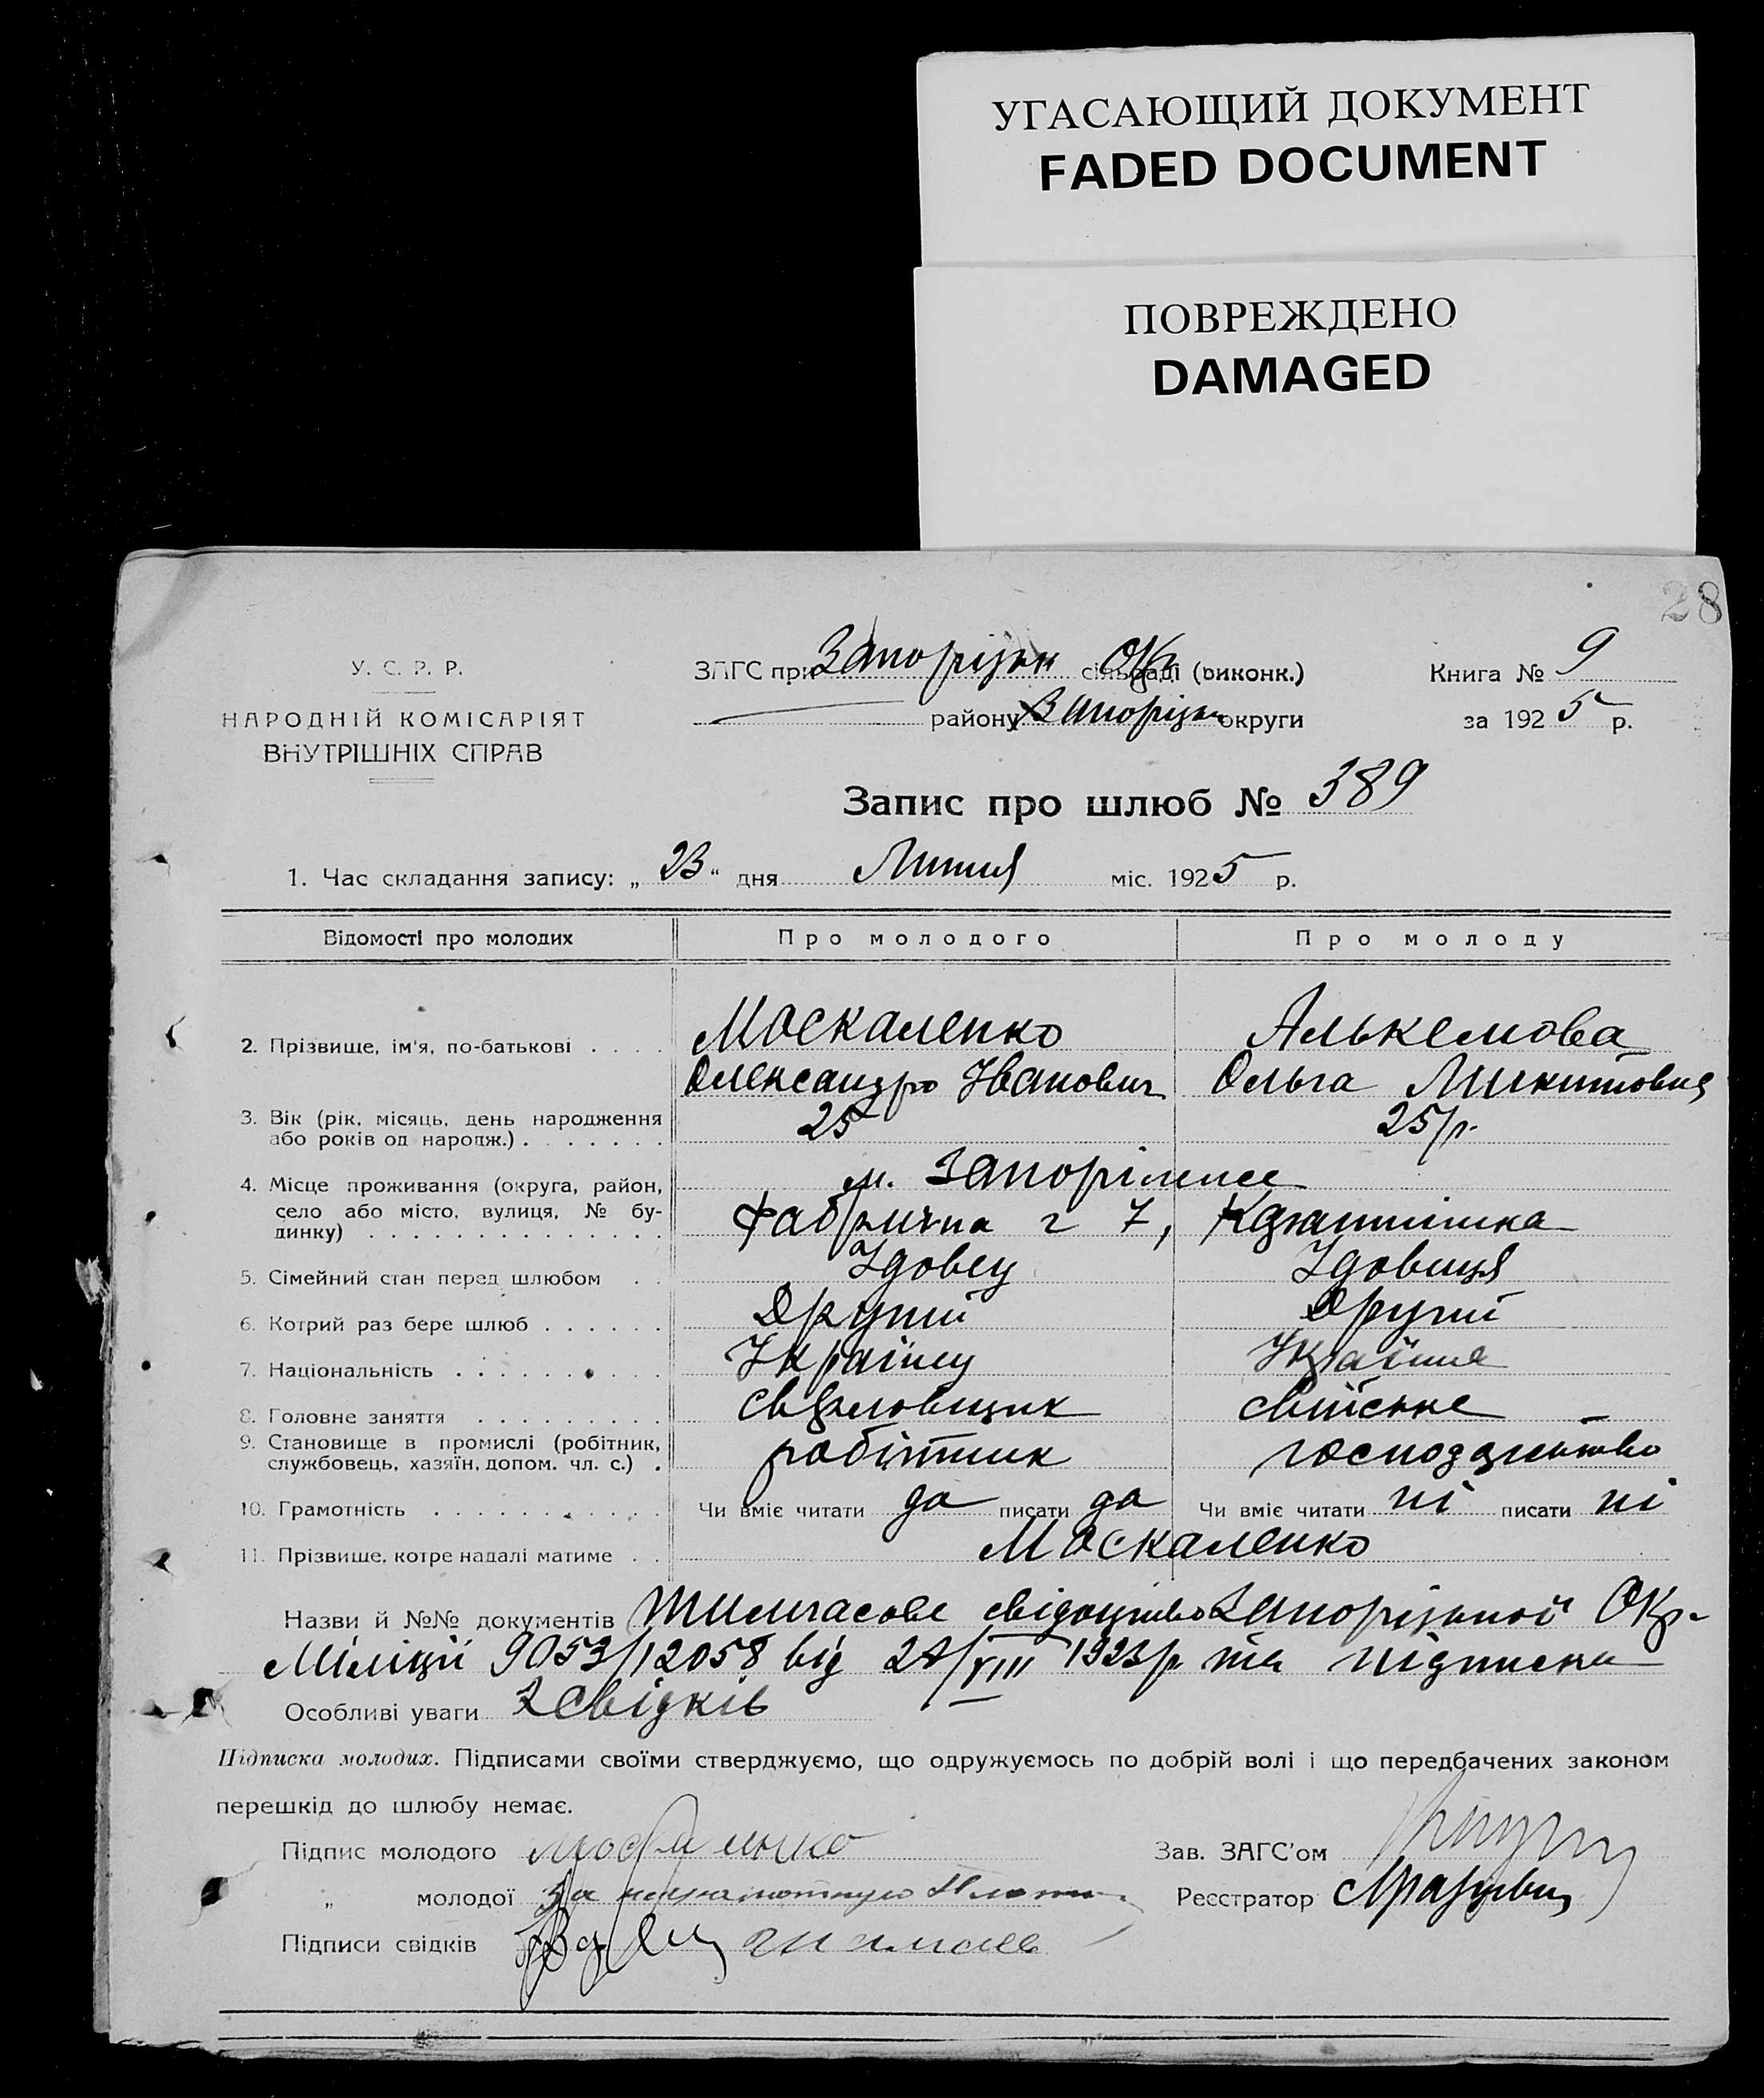 УГАСАЮЩИЙ ДОКУМЕНТ
FADED DOCUMENT
ПОВРЕЖДЕНО
DAMAGED
28
У. С. Р. Р.
НАРОДНІЙ КОМІСАРІЯТ
ВНУТРІШНІХ СПРАВ
ЗАГС при Запорізьк Окр сільраді (виконк.)
району Запорізьк округи
Книга № 9
за 1925 р.
Запис про шлюб № 389
1. Час складання запису: „ 23 “ дня Липня міс. 1925 р.
Відомості про молодих Про молодого Про молоду
2. Прізвище, ім'я, по-батькові . . . . Москаленко Алькемова
Олександр Іванович Ольга Микитовна
3. Вік (рік, місяць, день народження 25 25 р.
або років од народж.) . . . . . . .
4. Місце проживання (округа, район, м. Запоріжжє
село або місто, вулиця, № бу- Фабрична 7,
динку) . . . . . . . . . . . . . .
5. Сімейний стан перед шлюбом . . Удовец Удовиця
6. Котрий раз бере шлюб . . . . . . Другий Другий
7. Національність . . . . . . . . . Українец Українка
8. Головне заняття . . . . . . . . . свійське
9. Становище в промислі (робітник, робітник господарство
службовець, хазяїн, допом. чл. с.) .
10. Грамотність . . . . . . . . . . . Чи вміє читати да писати да Чи вміє читати ні писати ні
11. Прізвище, котре надалі матиме . . Москаленко
Назви й №№ документів Тимчасове свідоцтво Запорізької Окр.
Міліції 9053/12058 від /VIII 1923 р та підписка
Особливі уваги 2 свідків
Підписка молодих. Підписами своїми стверджуємо, що одружуємось по добрій волі і що передбачених законом
перешкід до шлюбу немає.
Підпис молодого Москаленко Зав. ЗАГС'ом
„ молодої За неграмотную Реєстратор
Підписи свідків